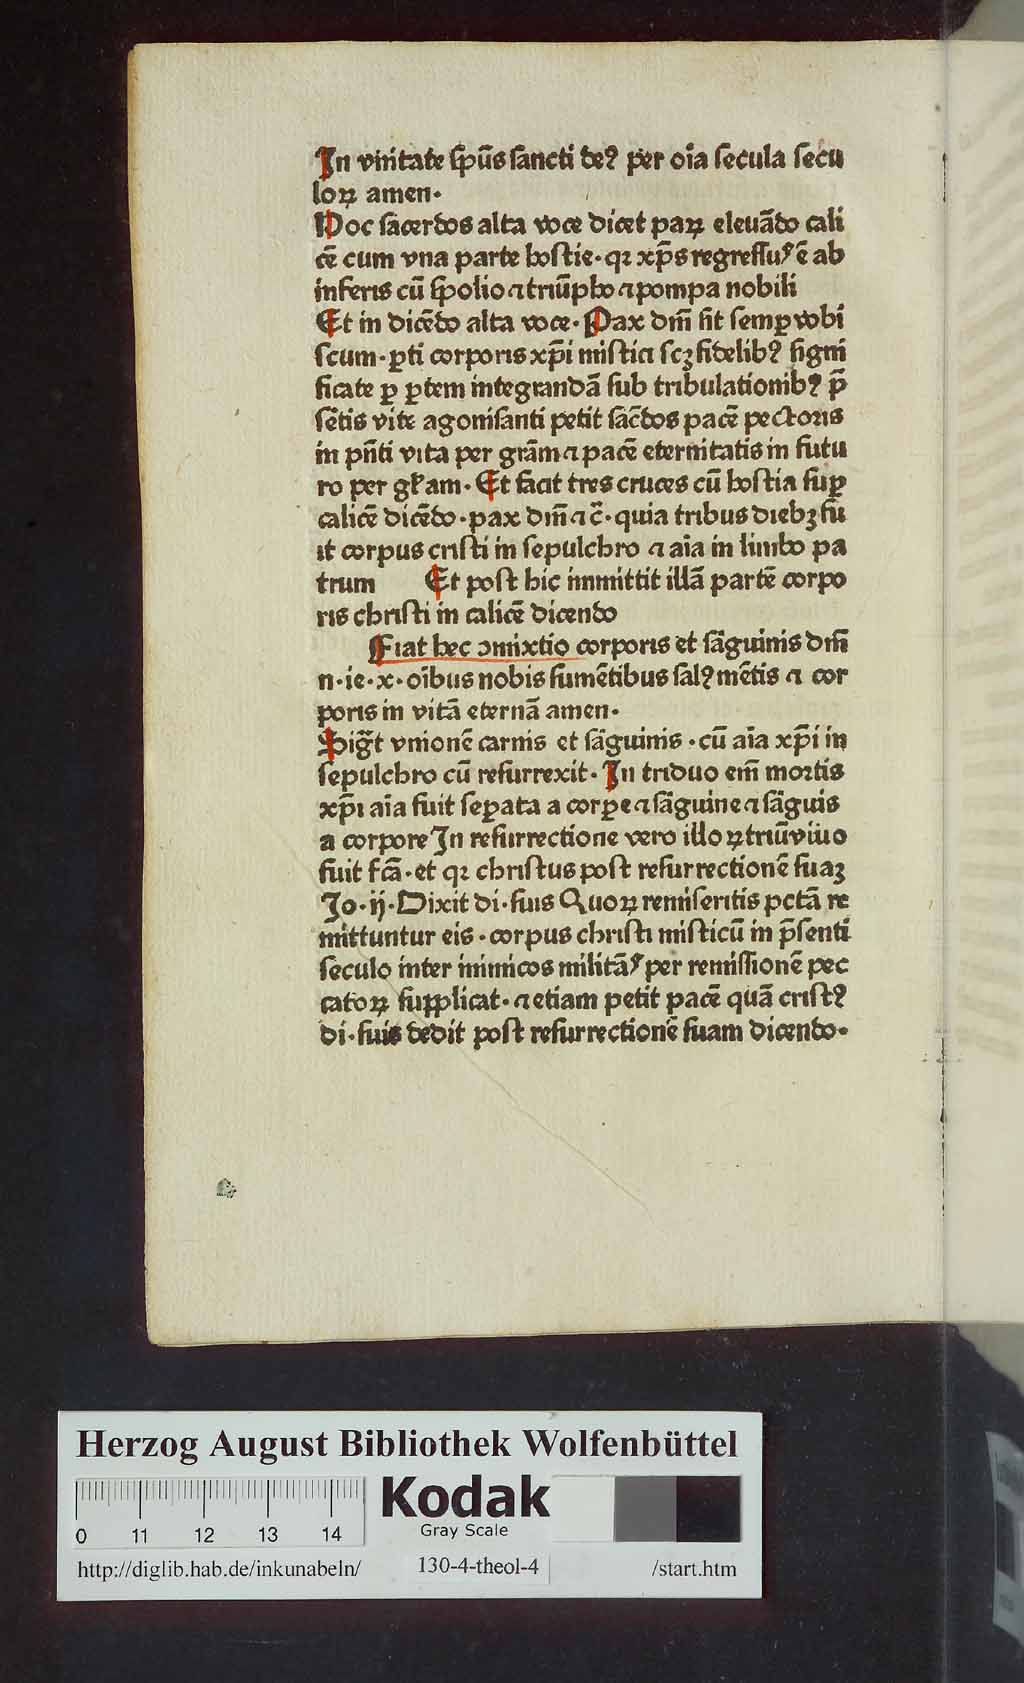 In vnitate sp̄us sancti deꝰ per oīa secula secu
loꝝ amen·
Hoc sacerdos alta voce dicet paꝝ eleuādo cali
cē cum vna parte hostie· qꝛ xp̄s regressuꝰ ē ab
inferis cū spolio ⁊ triūpho ⁊ pompa nobili
Et in dicēdo alta voce· Pax dm̄ sit semꝑ vobi
scum· ꝑti corporis xp̄i mistici scꝫ fidelibꝰ signi
ficate ꝑ ꝑtem integrandā sub tribulationibꝰ p̄
sētis vite agonisanti petit sac̄dos pacē pectoris
in pn̄ti vita per grām ⁊ pacē eternitatis in futu
ro per gl'am· Et facit tres cruces cū hostia suꝑ
calicē dicēdo· pax dm̄ ⁊ c̄· quia tribus diebꝫ fu
it corpus cristi in sepulchro ⁊ aīa in limbo pa
trum Et post hic inmittit illā partē corpo
ris christi in calicē dicendo
Fiat hec ↄmixtio corporis et sāguinis dm̄
n· ie· x· oībus nobis sumētibus salꝰ mētis ⁊ cor
poris in vitā eternā amen·
Sigt̄ vnionē carnis et sāguinis· cū aīa xp̄i in
sepulchro cū resurrexit· In triduo em̄ mortis
xp̄i aīa fuit seꝑata a corꝑe ⁊ sāguine ⁊ sāguis
a corpore In resurrectione vero illoꝝ triū vnio
fuit fcā· et qꝛ christus post resurrectionē suaꝫ
Jo· ij· Dixit di· suis Quoꝝ remiseritis pctā re
mittuntur eis· corpus christi misticū in p̄senti
seculo inter inimicos militāˢ per remissionē pec
catoꝝ supplicat· ⁊ etiam petit pacē quā cristꝰ
di· suis dedit post resurrectionē suam dicendo·
Herzog August Bibliothek Wolfenbüttel
0 11 12 13 14
Kodak
Gray Scale
http://diglib.hab.de/inkunabeln/ 130-4-theol-4 /start.htm